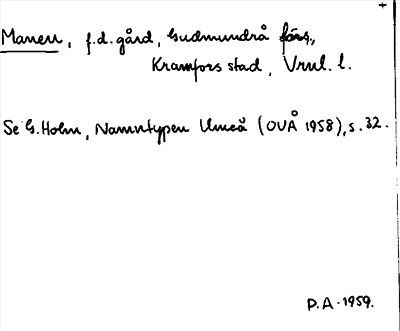 +
Maneu, f.d. gård, Gudmundrå förs.,
Kramfors stad, Vrnl. l.
Se G. Holm, Namntypen Umeå (OUÅ 1958), s. 32.
P.A. 1959.